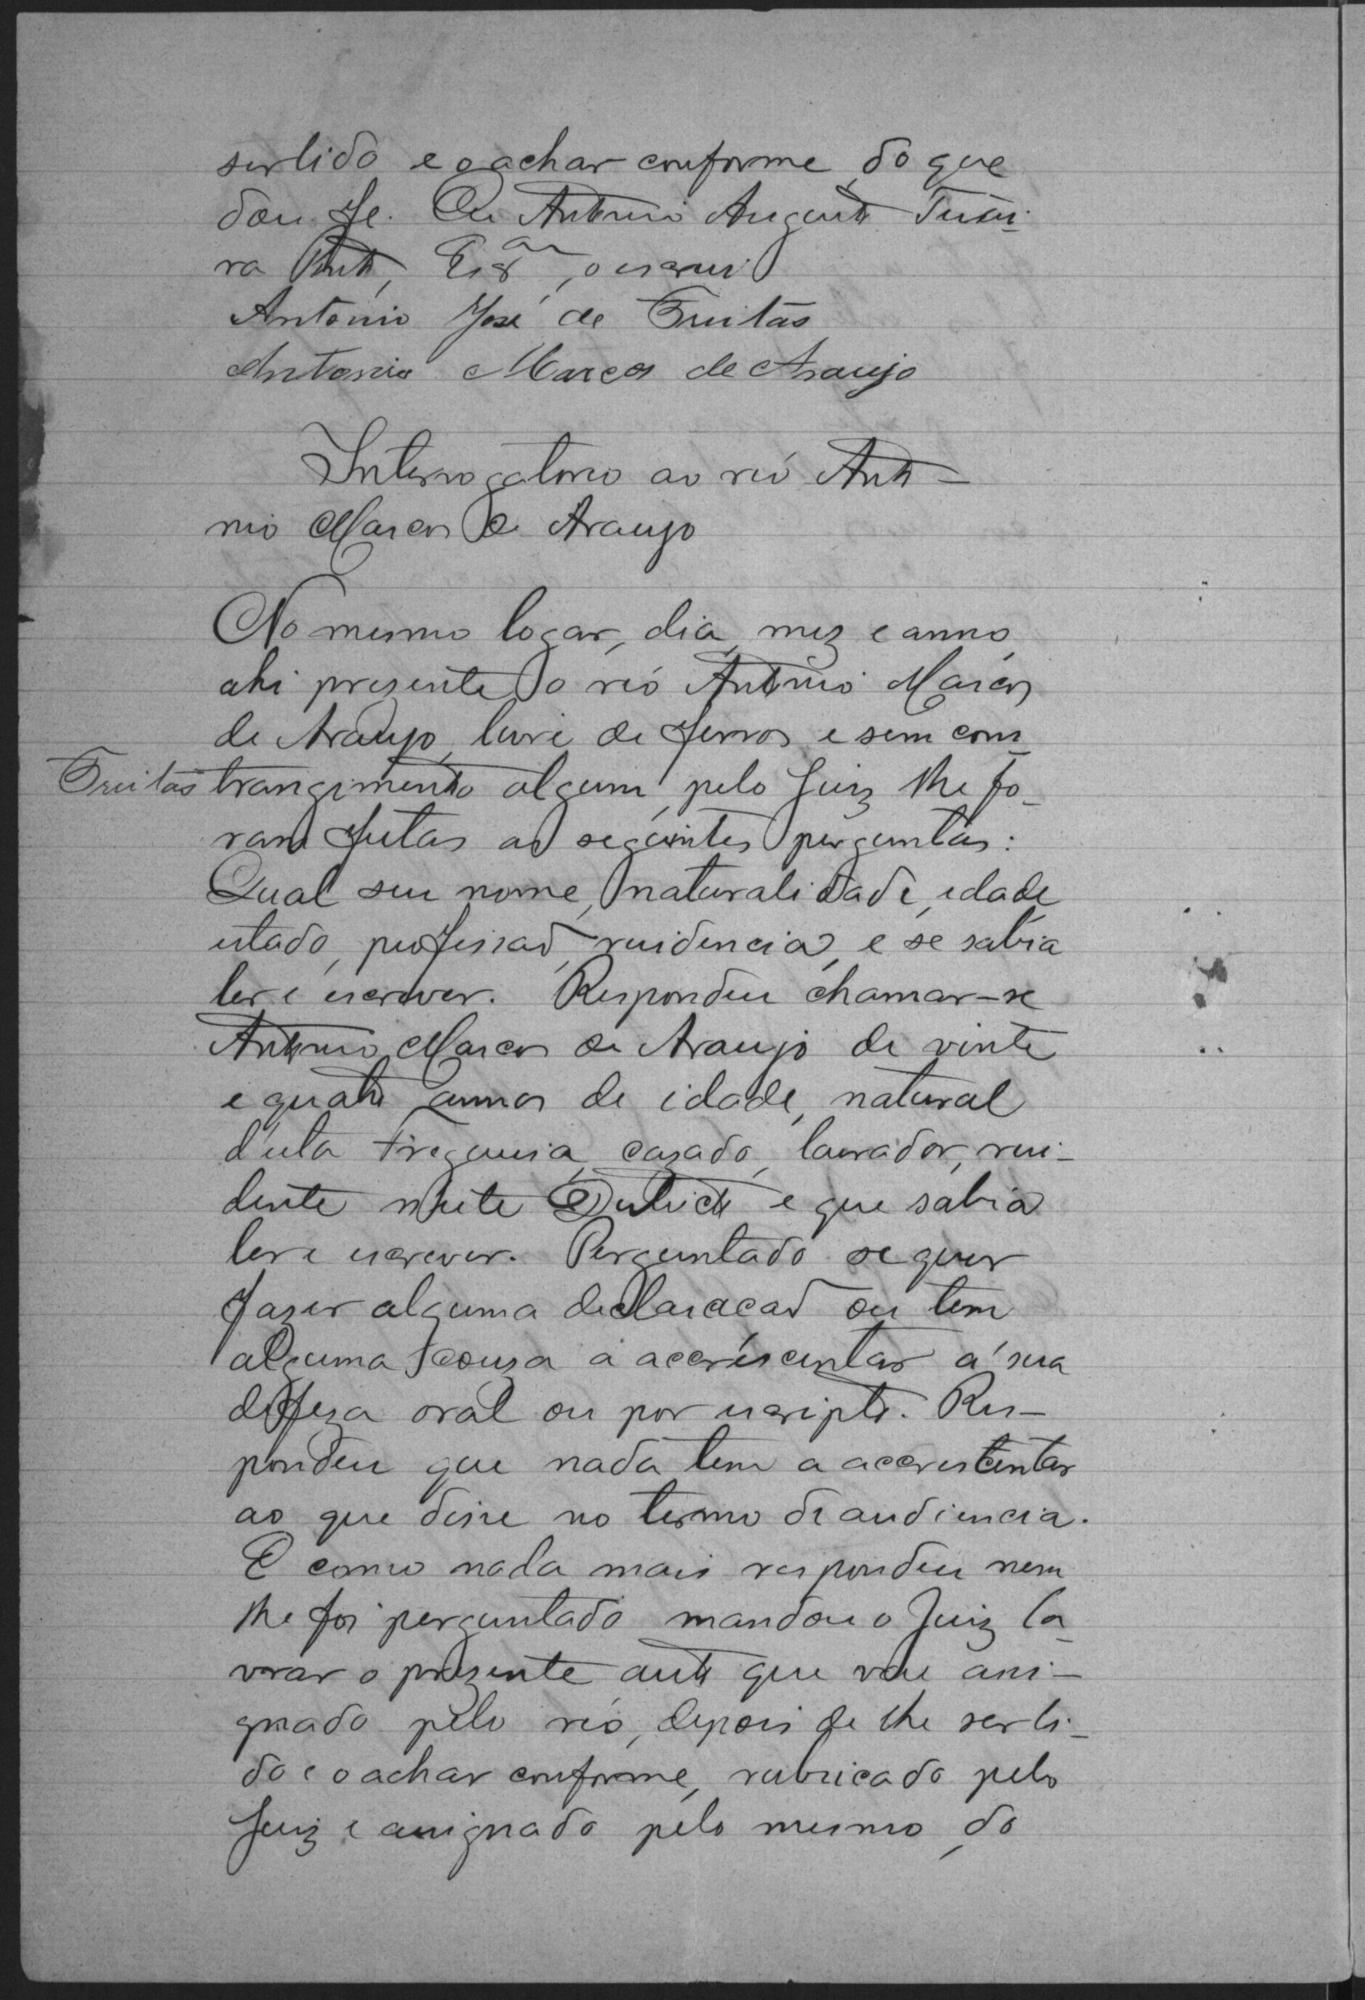 ser lido e o achar conforme, do que
dou fé. Eu Antonio Augusto Tuxei-
ra Pinto, Escr.ᵃᵐ, o escrevi
Antonio José de Freitas
Antonio Marcos de Araujo
Interrogatorio ao reó Anto-
nio Marcos de Araujo
No mesmo logar, dia, mez e anno,
ahi prezente o reó Antonio Marcos
de Araujo, livre de ferros e sem cons-
Freitas
trangimento algum, pelo Juiz lhe fo-
ram feitas as seguintes perguntas:
Qual seu nome, naturalidade, edade,
estado, profissaõ, residencia, e se sabia
ler e escrever. Respondeu chamar-se
Antonio Marcos de Araujo de vinte
e quatro annos de idade, natural
d'esta Freguesia, cazado, lavrador, resi-
dente neste Districto e que sabia
ler e escrever. Perguntado se quer
fazer alguma declaracaõ ou tem
alguma couza a accrescentar á sua
defeza oral ou por escripto. Res-
pondeu que nada tem a accrescentar
ao que disse no termo de audiencia.
E como nada mais respondeu nem
lhe foi perguntado mandou o Juiz la-
vrar o prezente auto que vae assi-
gnado pelo reó, depois de lhe ser li-
do e o achar conforme, rubricado pelo
Juiz e assignado pelo mesmo, do